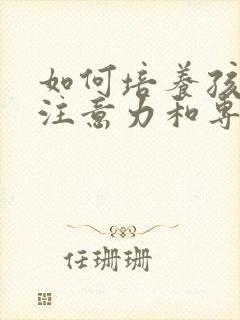 如何培養孩
注意力和專
任珊珊